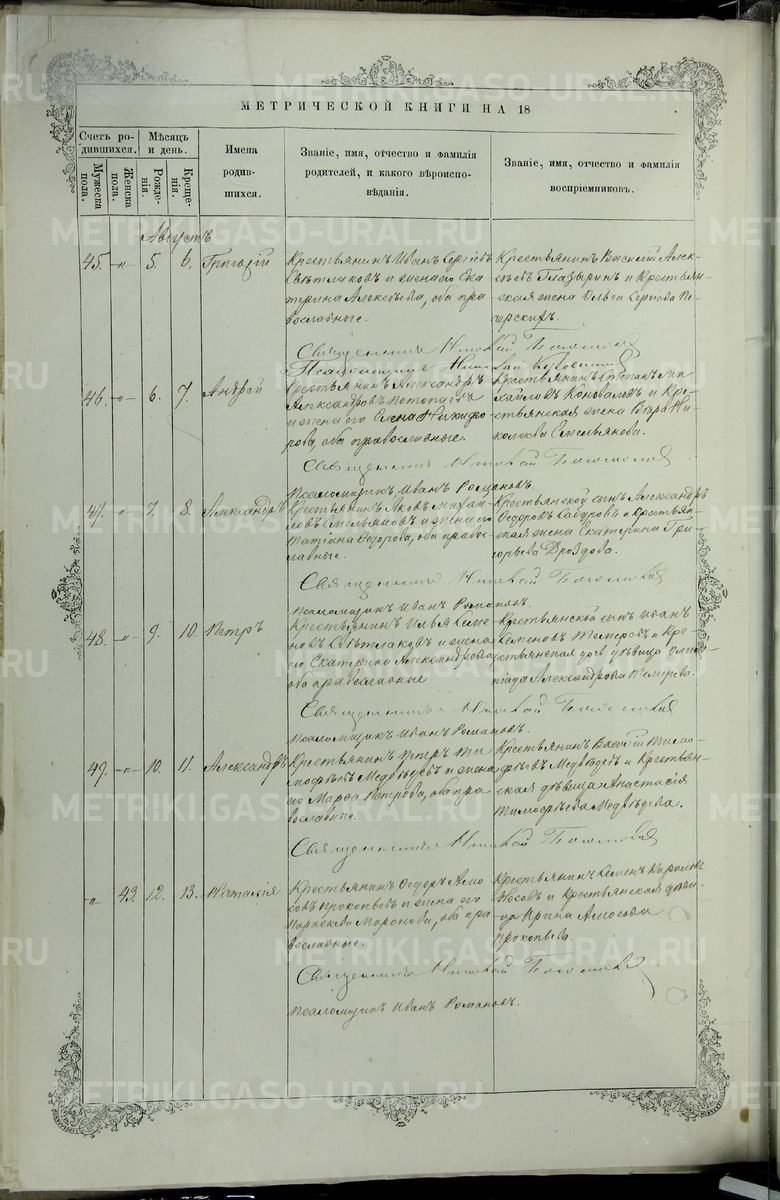 МЕТРИЧЕСКОЙ КНИГИ НА 18
Счетъ ро-
дившихся.
Мужеска
пола.
Женска
пола.
Мѣсяцъ
и день.
Рожде-
нія.
Креще-
нія.
Имена
родив-
шихся.
Званіе, имя, отчество и фамилія
родителей, и какого вѣроиспо-
вѣданія.
Званіе, имя, отчество и фамилія
воспріемниковъ.
Августъ
45. —„— 5. 6. Григорій
Крестьянинъ Иванъ Сергѣевъ
Свѣтлаковъ и жена его Ека
терина Алексѣева, оба пра
вославные.
Крестьянинъ Василій Алек-
сѣевъ Глазыринъ и крестьян-
ская жена Ольга Сергѣева Пе-
черскихъ.
Священникъ Николай
Псаломщикъ
46. —„— 6. 7. Андрей
Крестьянинъ Александръ
Александровъ
и жена его Елена Никифо
рова, оба православные.
Крестьянинъ Степанъ Ми
хайловъ Коноваловъ и кре-
стьянская жена Вѣра Ни
колаева Емельянова.
Священникъ Николай
Псаломщикъ Иванъ Романовъ.
47. „ 7. 8. Александръ
Крестьянинъ Яковъ Михай
ловъ Емельяновъ и жена его
Татіана Ѳедорова, оба правос-
лавные.
Крестьянской сынъ Александръ
Ѳедоровъ и крестьян-
ская жена Екатерина Гри
горьева Дроздова.
Священникъ Николай
Псаломщикъ Иванъ Романовъ.
48. —„— 9. 10. Петръ
Крестьянинъ Илья Семе
новъ Свѣтлаковъ и жена
его Екатерина Александрова
оба православные
Крестьянской сынъ Иванъ
Семеновъ и кре-
стьянская дочь дѣвица
Александрова
Священникъ Николай
Псаломщикъ Иванъ Романовъ.
49. —„— 10. 11. Александръ
Крестьянинъ Петръ Ти
мофѣевъ Медвѣдевъ и жена
его Марѳа Петрова, оба пра
вославные.
Крестьянинъ Василій Тимо-
фѣевъ Медвѣдевъ и крестьян-
ская дѣвица Анастасія
Тимофѣева Медвѣдева.
Священникъ Николай
„ 43. 12. 13. Наталія
Крестьянинъ Ѳедоръ Амо
совъ Прокопьевъ и жена его
Параскева Миронова, оба пра
вославные.
Крестьянинъ Семенъ Кириловъ
Носовъ и крестьянская дѣви-
ца Ирина Амосова
Прокопьева.
Священникъ Николай
Псаломщикъ Иванъ Романовъ.
METRIKI.GASO-URAL.RU